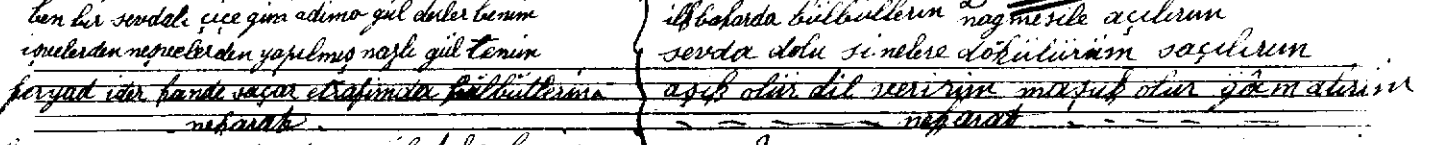 ben bir sevdalı çiçeğim adıma gül derler benim
işvelerden neşvelerden yapılmış nazlı gül tenim
feryad ider hande saçar etrafımda bülbüllerim
nekarat
ilkbaharda bülbüllerin nagmesile açılırım
sevda dolu sinelere dökülürüm saçılırım
aşık olur dil veririm maşuk olur gâm alırım
nekarat